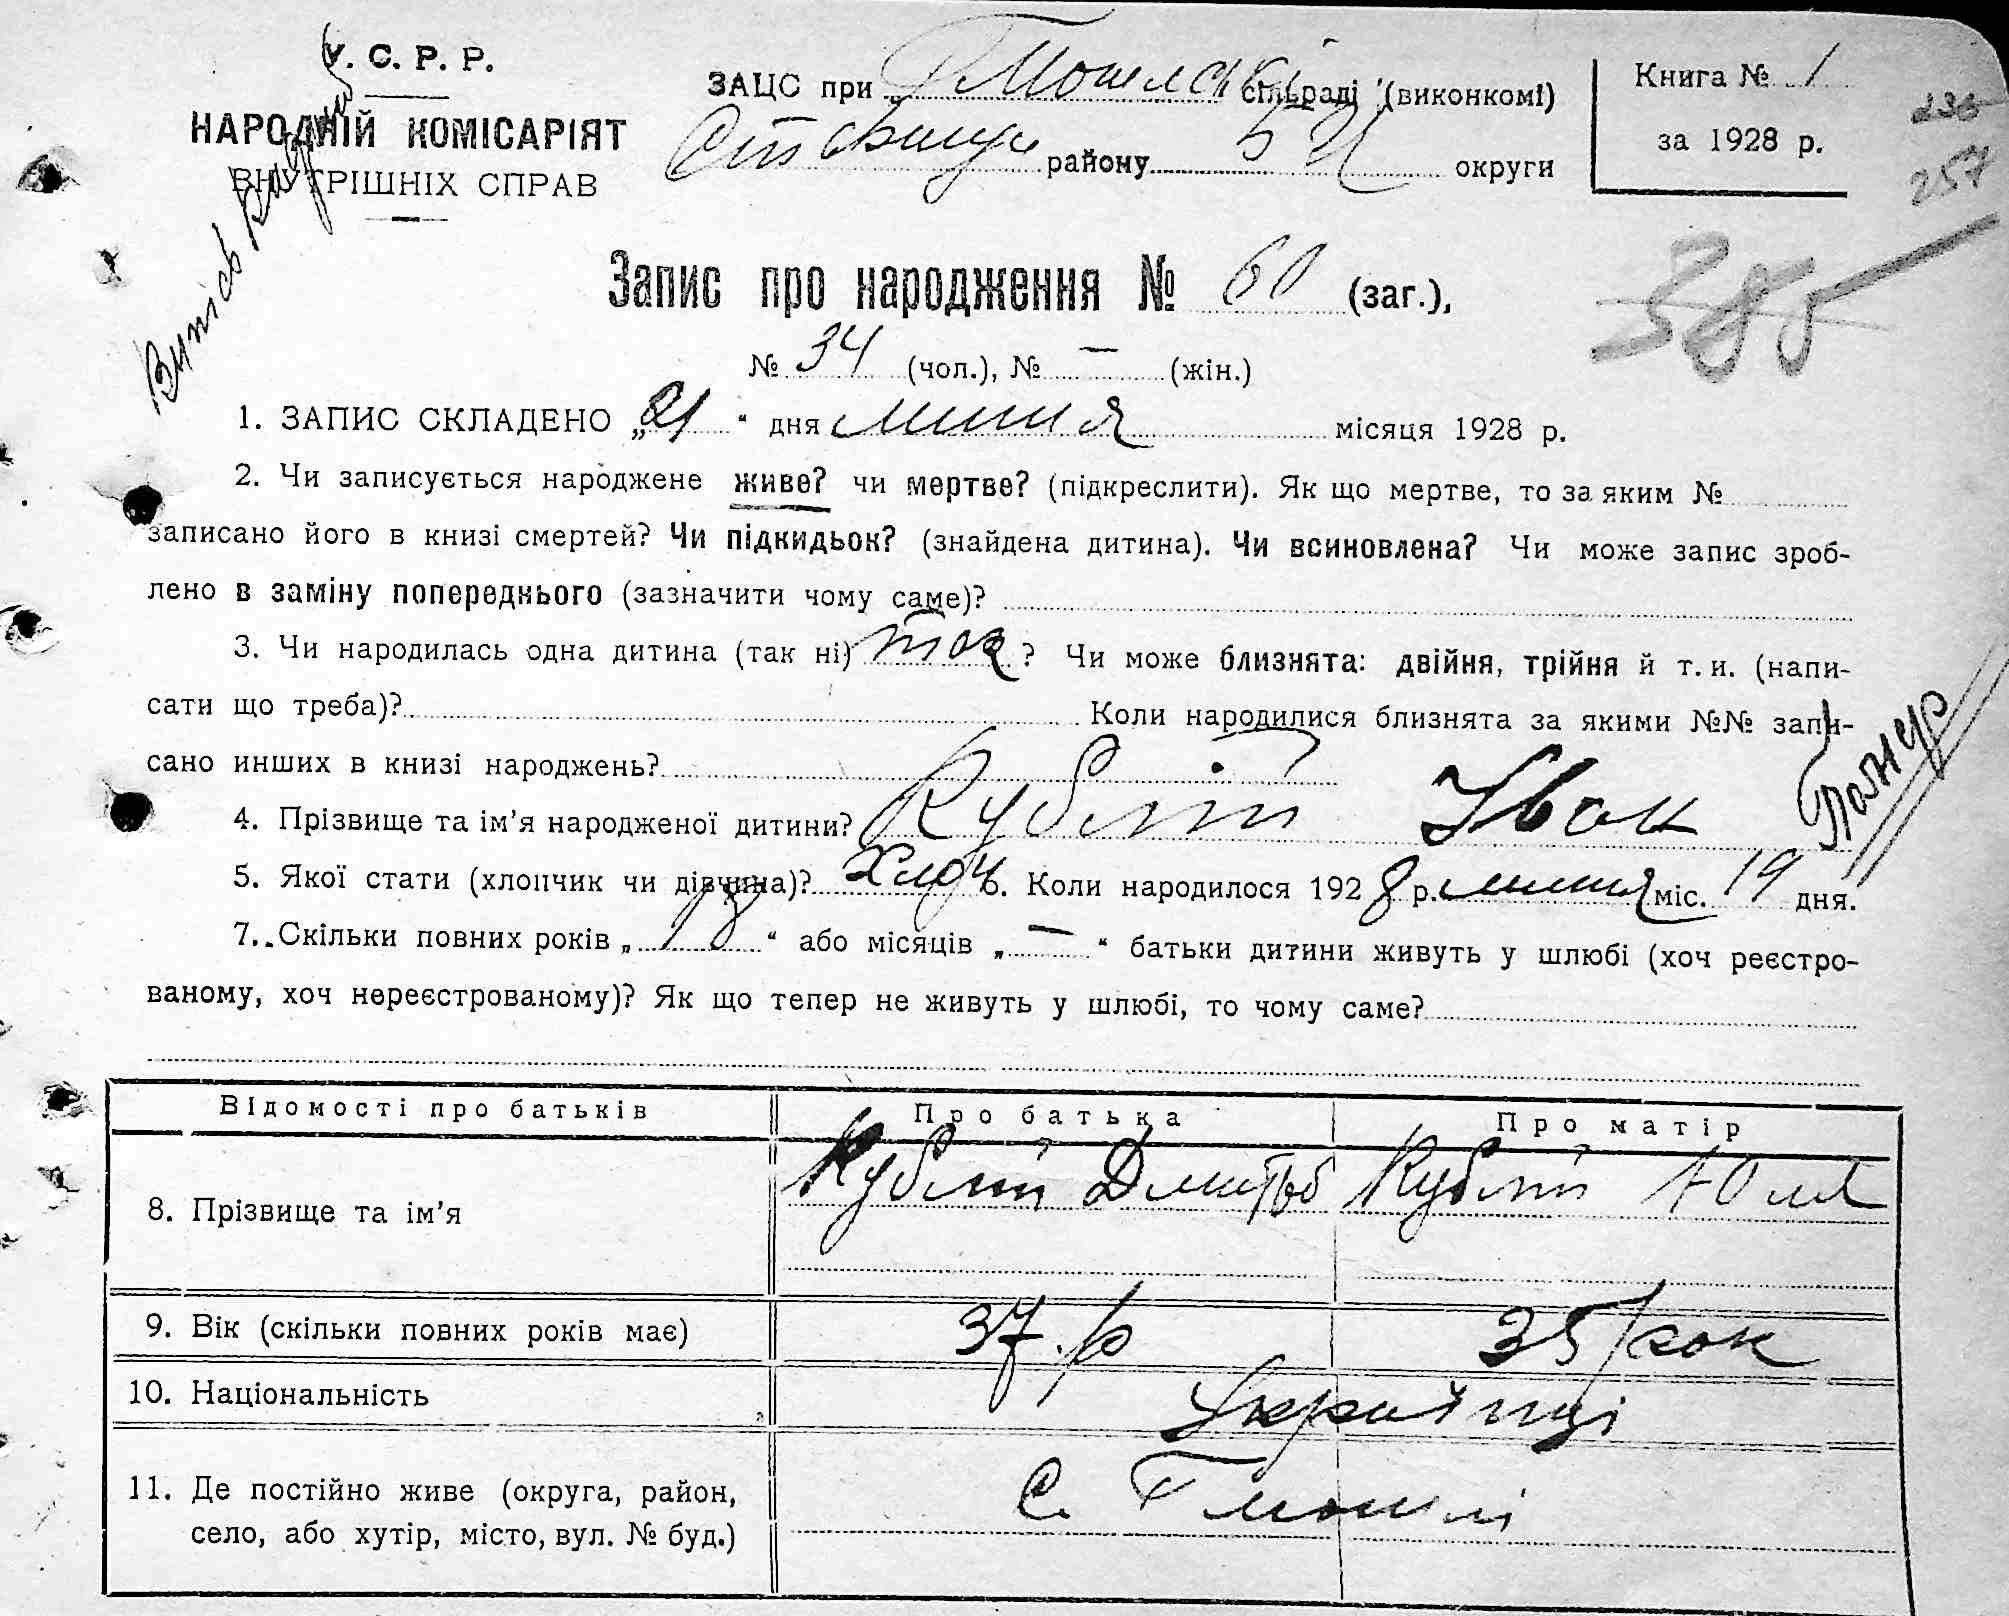 У. С. Р. Р.
НАРОДНІЙ КОМІСАРІЯТ
ВНУТРІШНІХ СПРАВ
ЗАЦС при сільраді (виконкомі)
району Б Ц округи
Книга № 1
за 1928 р.
235
257
385
Запис про народження № 60 (заг.),
№ 34 (чол.), № — (жін.)
1. ЗАПИС СКЛАДЕНО „21“ дня липня місяця 1928 р.
2. Чи записується народжене живе? чи мертве? (підкреслити). Як що мертве, то за яким №
записано його в книзі смертей? Чи підкидьок? (знайдена дитина). Чи всиновлена? Чи може запис зроб-
лено в заміну попереднього (зазначити чому саме)?
3. Чи народилась одна дитина (так ні) так ? Чи може близнята: двійня, трійня й т. и. (напи-
сати що треба)? Коли народилися близнята за якими №№ запи-
сано инших в книзі народжень?
4. Прізвище та ім’я народженої дитини? Кублій Іван
5. Якої стати (хлопчик чи дівчина)? Хлоч 6. Коли народилося 1928 р. липня міс. 19 дня.
7. Скільки повних років „18“ або місяців „—“ батьки дитини живуть у шлюбі (хоч реєстро-
ваному, хоч нереєстрованому)? Як що тепер не живуть у шлюбі, то чому саме?
Відомості про батьків Про батька Про матір
8. Прізвище та ім’я Кублій Дмитро Кублій Юлія
9. Вік (скільки повних років має) 37 р 35 рок
10. Національність Українці
11. Де постійно живе (округа, район,
село, або хутір, місто, вул. № буд.)